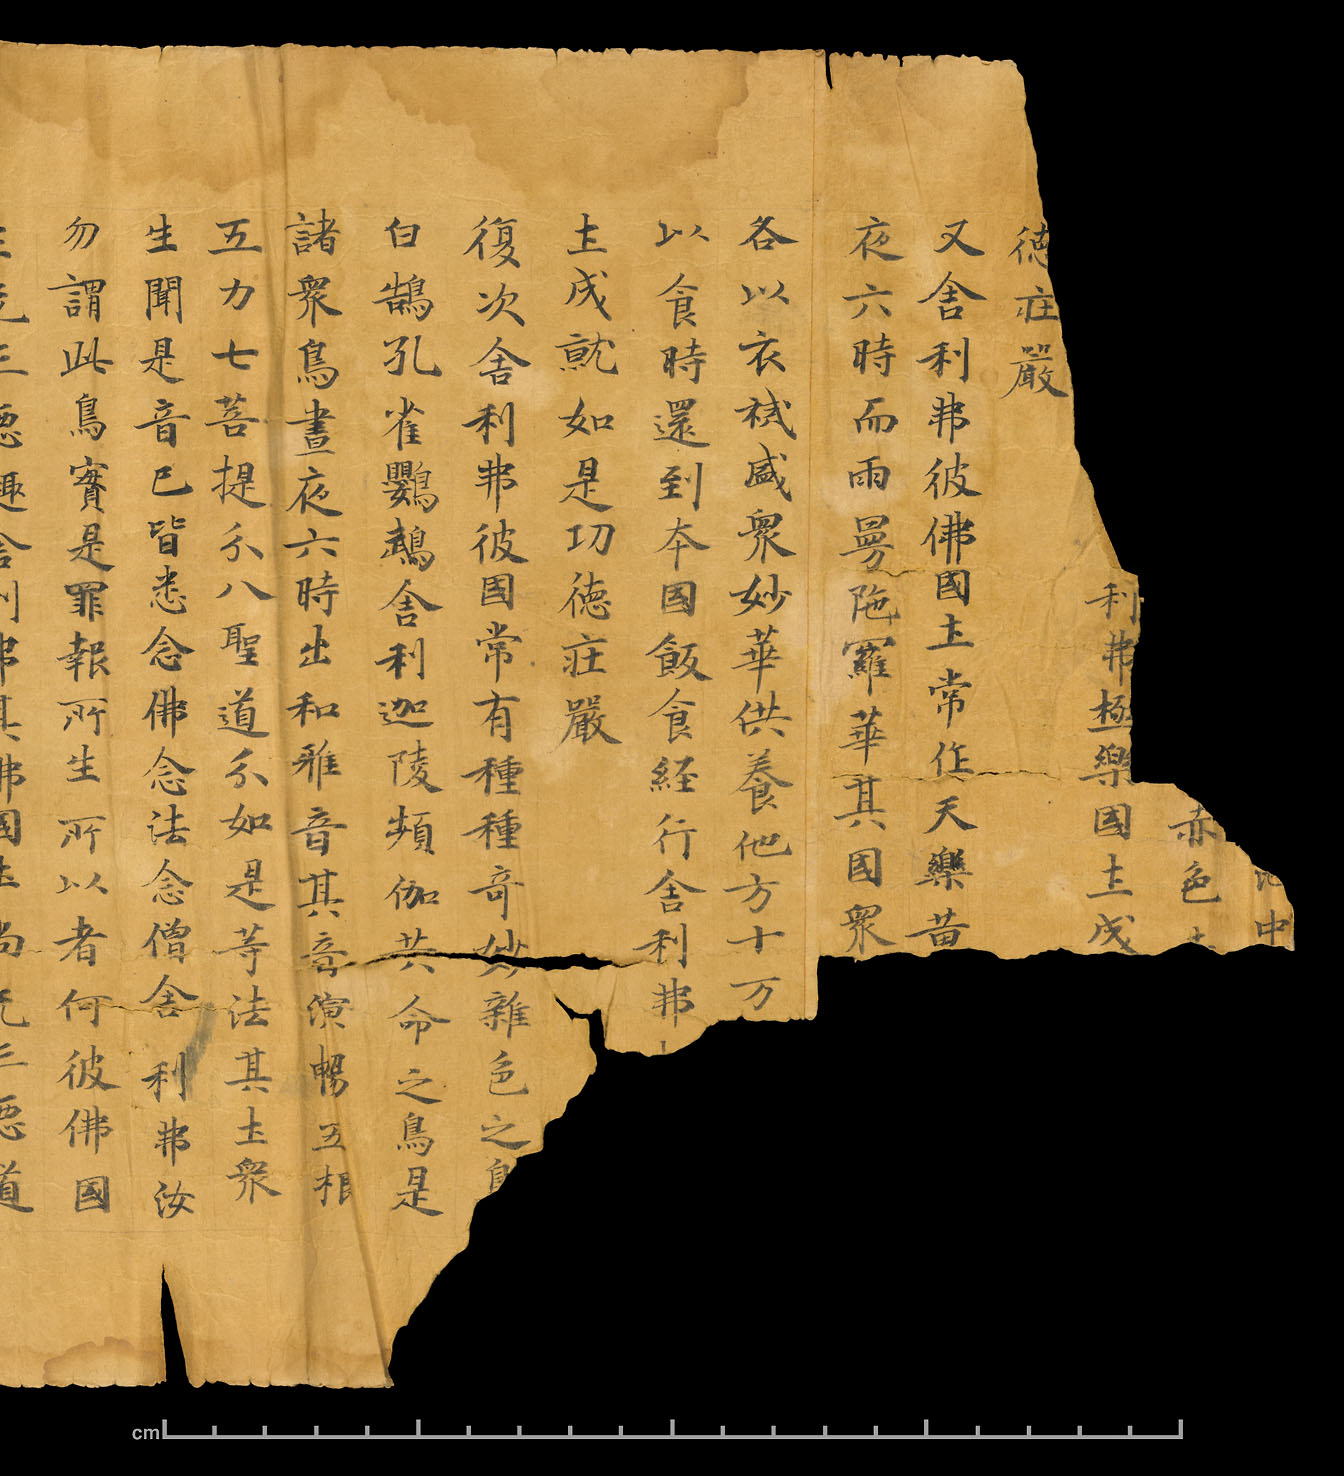 池中
赤色
利弗極樂國土成
德莊嚴
又舍利弗彼佛國土常作天樂黃
夜六時而雨曼陁羅華其國衆
各以衣祴盛衆妙華供養他方十万
以食時還到本國飯食経行舍利弗
土成就如是功德莊嚴
復次舍利弗彼國常有種種奇妙雜色之鳥
白鵠孔雀鸚鵡舍利迦陵頻伽共命之鳥是
諸衆鳥晝夜六時出和雅音其音演暢五根
五力七菩提分八聖道分如是等法其土衆
生聞是音已皆悉念佛念法念僧舍利弗汝
勿謂此鳥實是罪報所生所以者何彼佛國
生无三惡趣舍利弗其佛國土尚无三惡道
cm